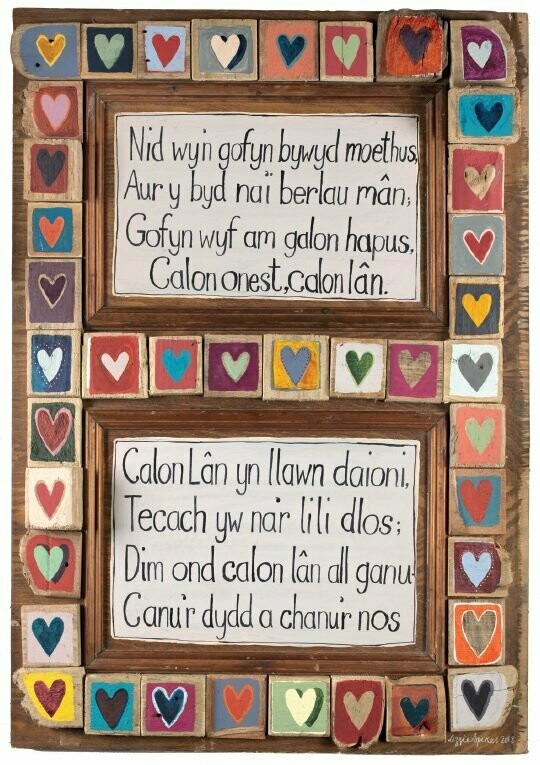 Nid wy'n gofyn bywyd moethus,
Aur y byd na'i berlau mân;
Gofyn wyf am galon hapus,
Calon onest, calon lân.
Calon Lân yn llawn daioni,
Tecach yw na'r lili dlos;
Dim ond calon lân all ganu-
Canu'r dydd a chanu'r nos
Lizzie Spikes 2018